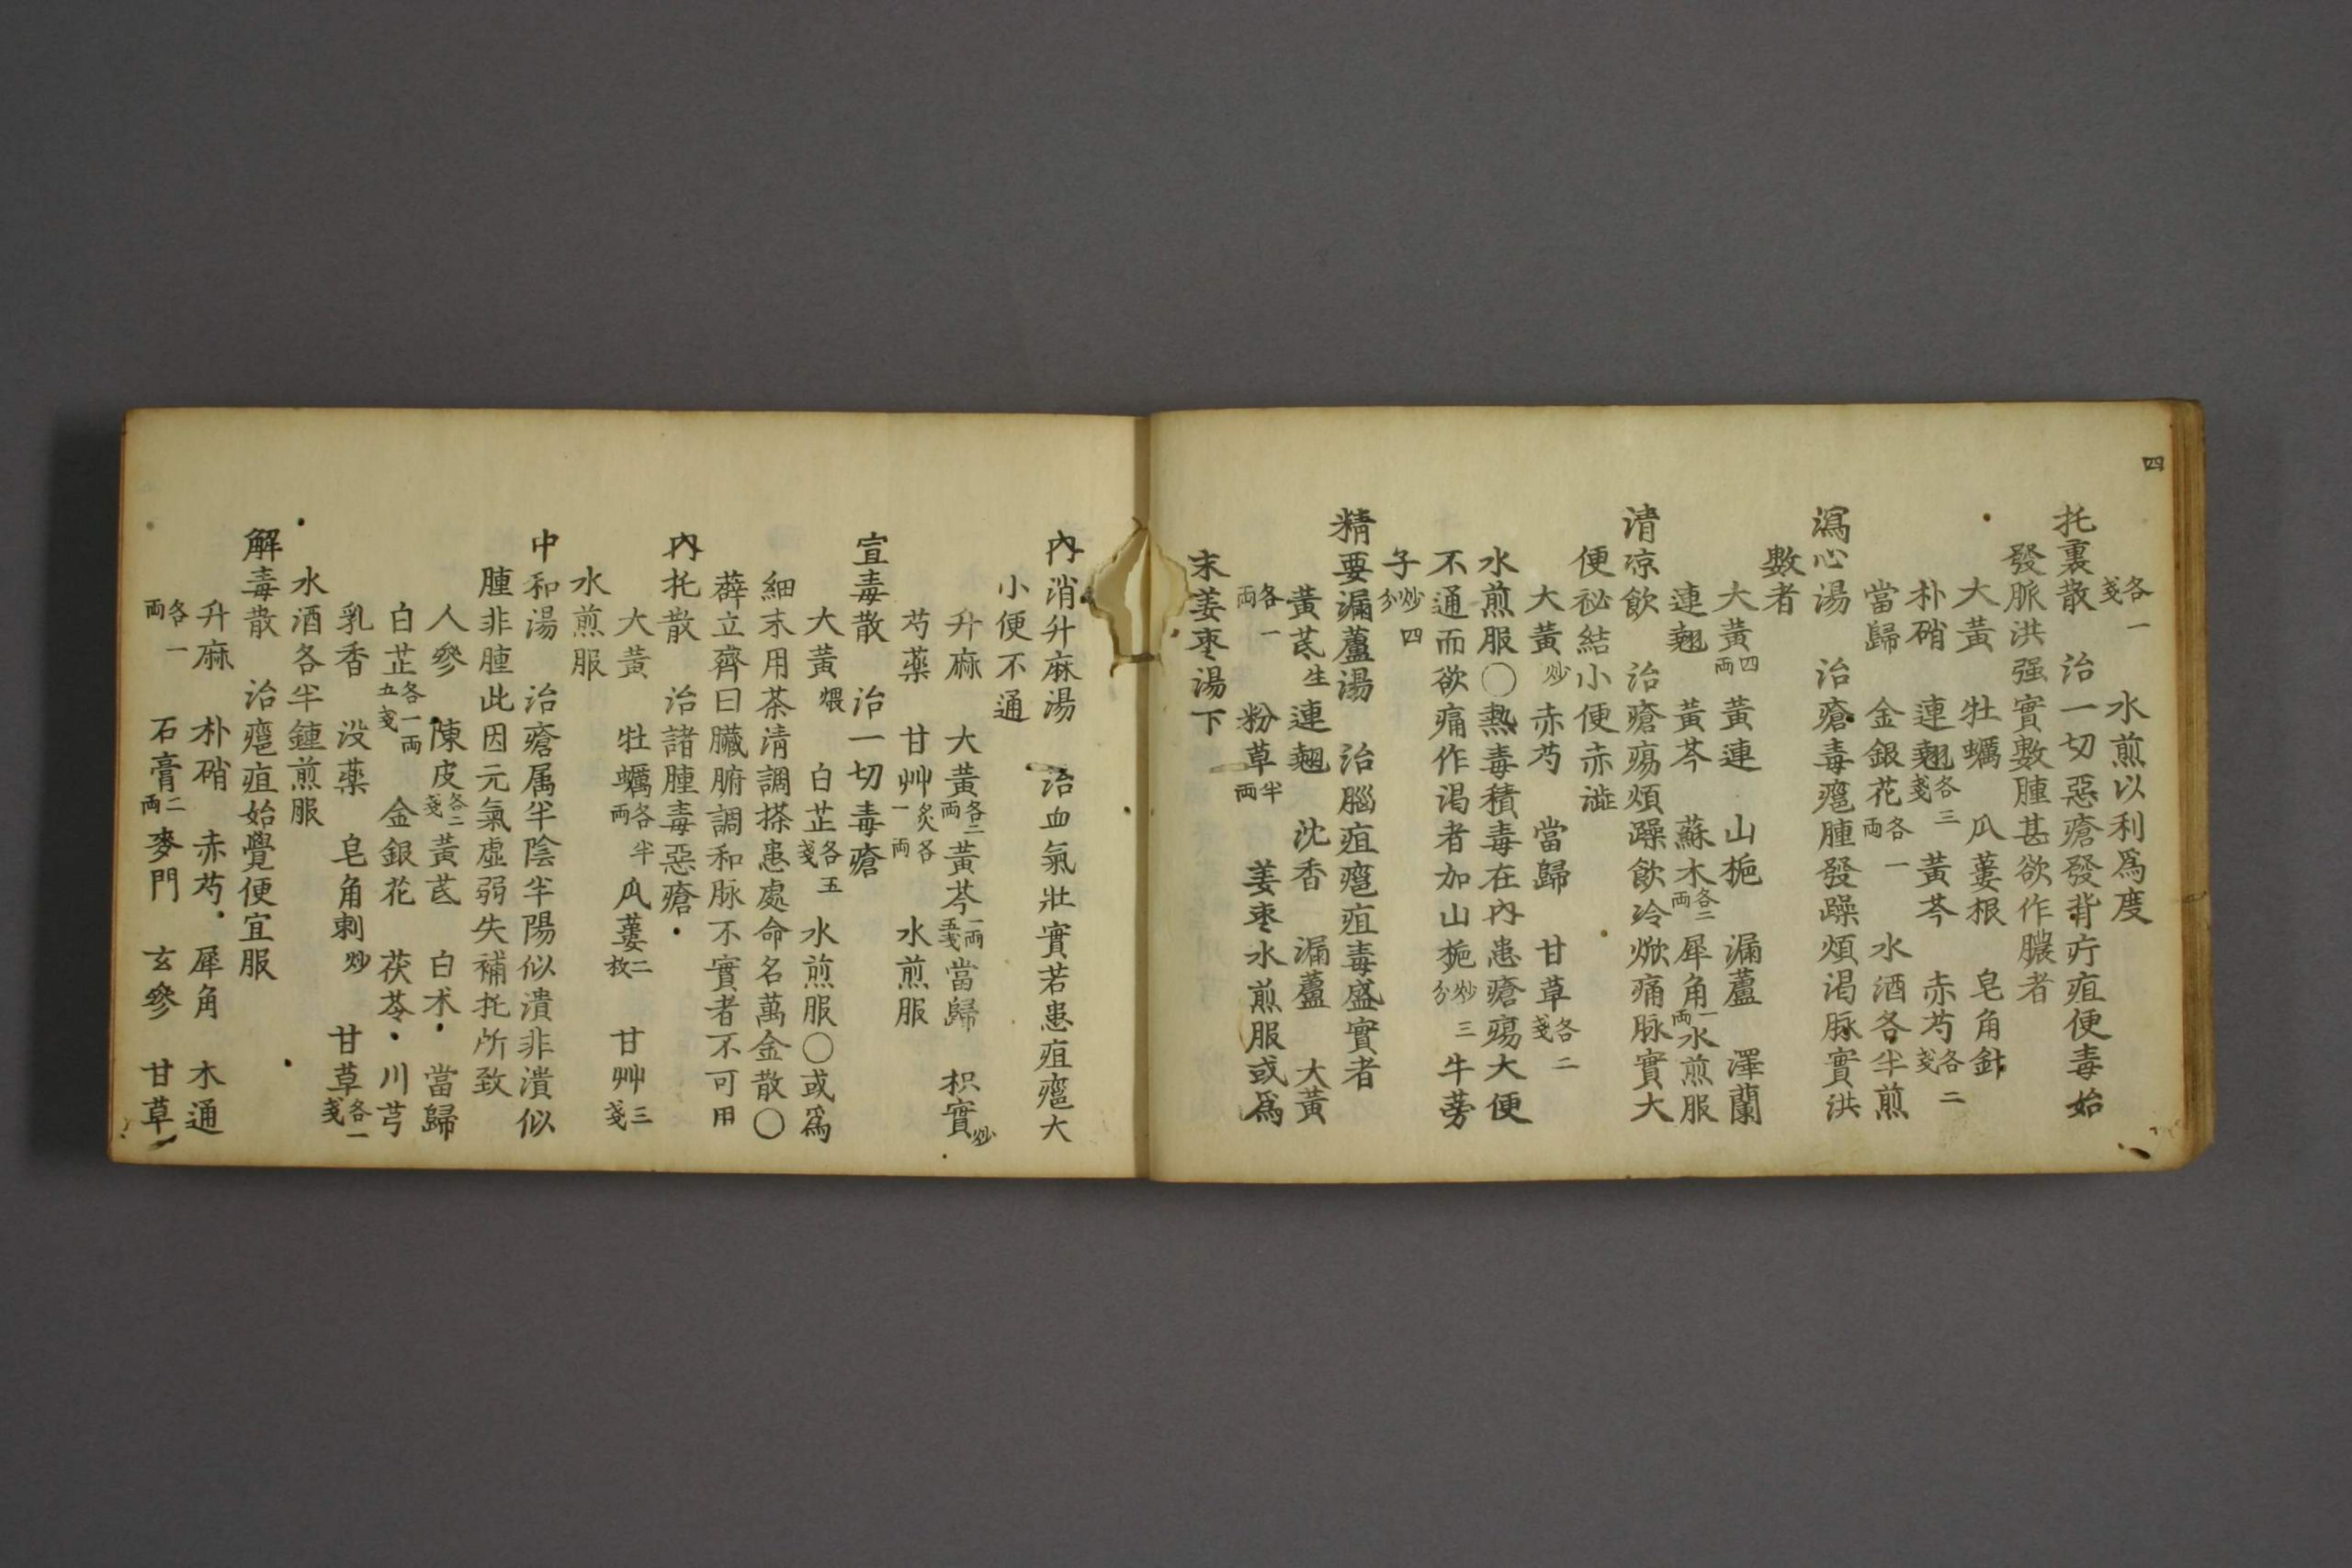 四
各一戔　水煎以利爲度
托裏散　治一切惡瘡發背疔疽便毒始
發脈洪强實數腫甚欲作膿者
大黃　牡蠣　瓜蔞根　皂角針
朴硝　連翹各三戔　黃芩　赤芍各二戔
當歸　金銀花各一両　水酒各半煎
瀉心湯　治瘡毒癰腫發躁煩渴脉實洪
數者
大黃四両　黃連　山梔　漏蘆　澤蘭
連翹　黃芩　蘇木各二両　犀角一両　水煎服
清凉飮　治瘡瘍煩躁飮冷焮痛脉實大
便祕結小便赤澁
大黃炒　赤芍　當歸　甘草各二戔
水煎服〇熱毒積毒在內患瘡瘍大便
不通而欲痛作渴者加山梔炒三分　牛蒡
子炒四分
精要漏蘆湯　治腦疽癰疽毒盛實者
黃芪生　連翹　沈香　漏蘆　大黃
各一両　粉草半両　姜枣水煎服或爲
末姜枣湯下
內消升麻湯　治血氣壯實若患疽癰大
小便不通
升麻　大黃各二両　黃芩一両五戔　當歸　枳實炒
芍藥　甘艸炙各一両　水煎服
宣毒散　治一切毒瘡
大黃煨　白芷各五戔　水煎服〇或爲
細末用茶淸調搽患處命名萬金散〇
薜立齊曰臟腑調和脉不實者不可用
內托散　治諸腫毒惡瘡
大黃　牡蠣各半両　瓜蔞二枚　甘艸三戔
水煎服
中和湯　治瘡属半陰半陽似潰非潰似
腫非腫此因元氣虛弱失補托所致
人參　陳皮各二戔　黃芪　白朮　當歸
白芷各一両五戔　金銀花　茯苓　川芎
乳香　没藥　皂角刺炒　甘草各一戔
水酒各半鍾煎服
解毒散　治癰疽始覺便宜服
升麻　朴硝　赤芍　犀角　木通
各一両　石膏二両　麥門　玄參　甘草